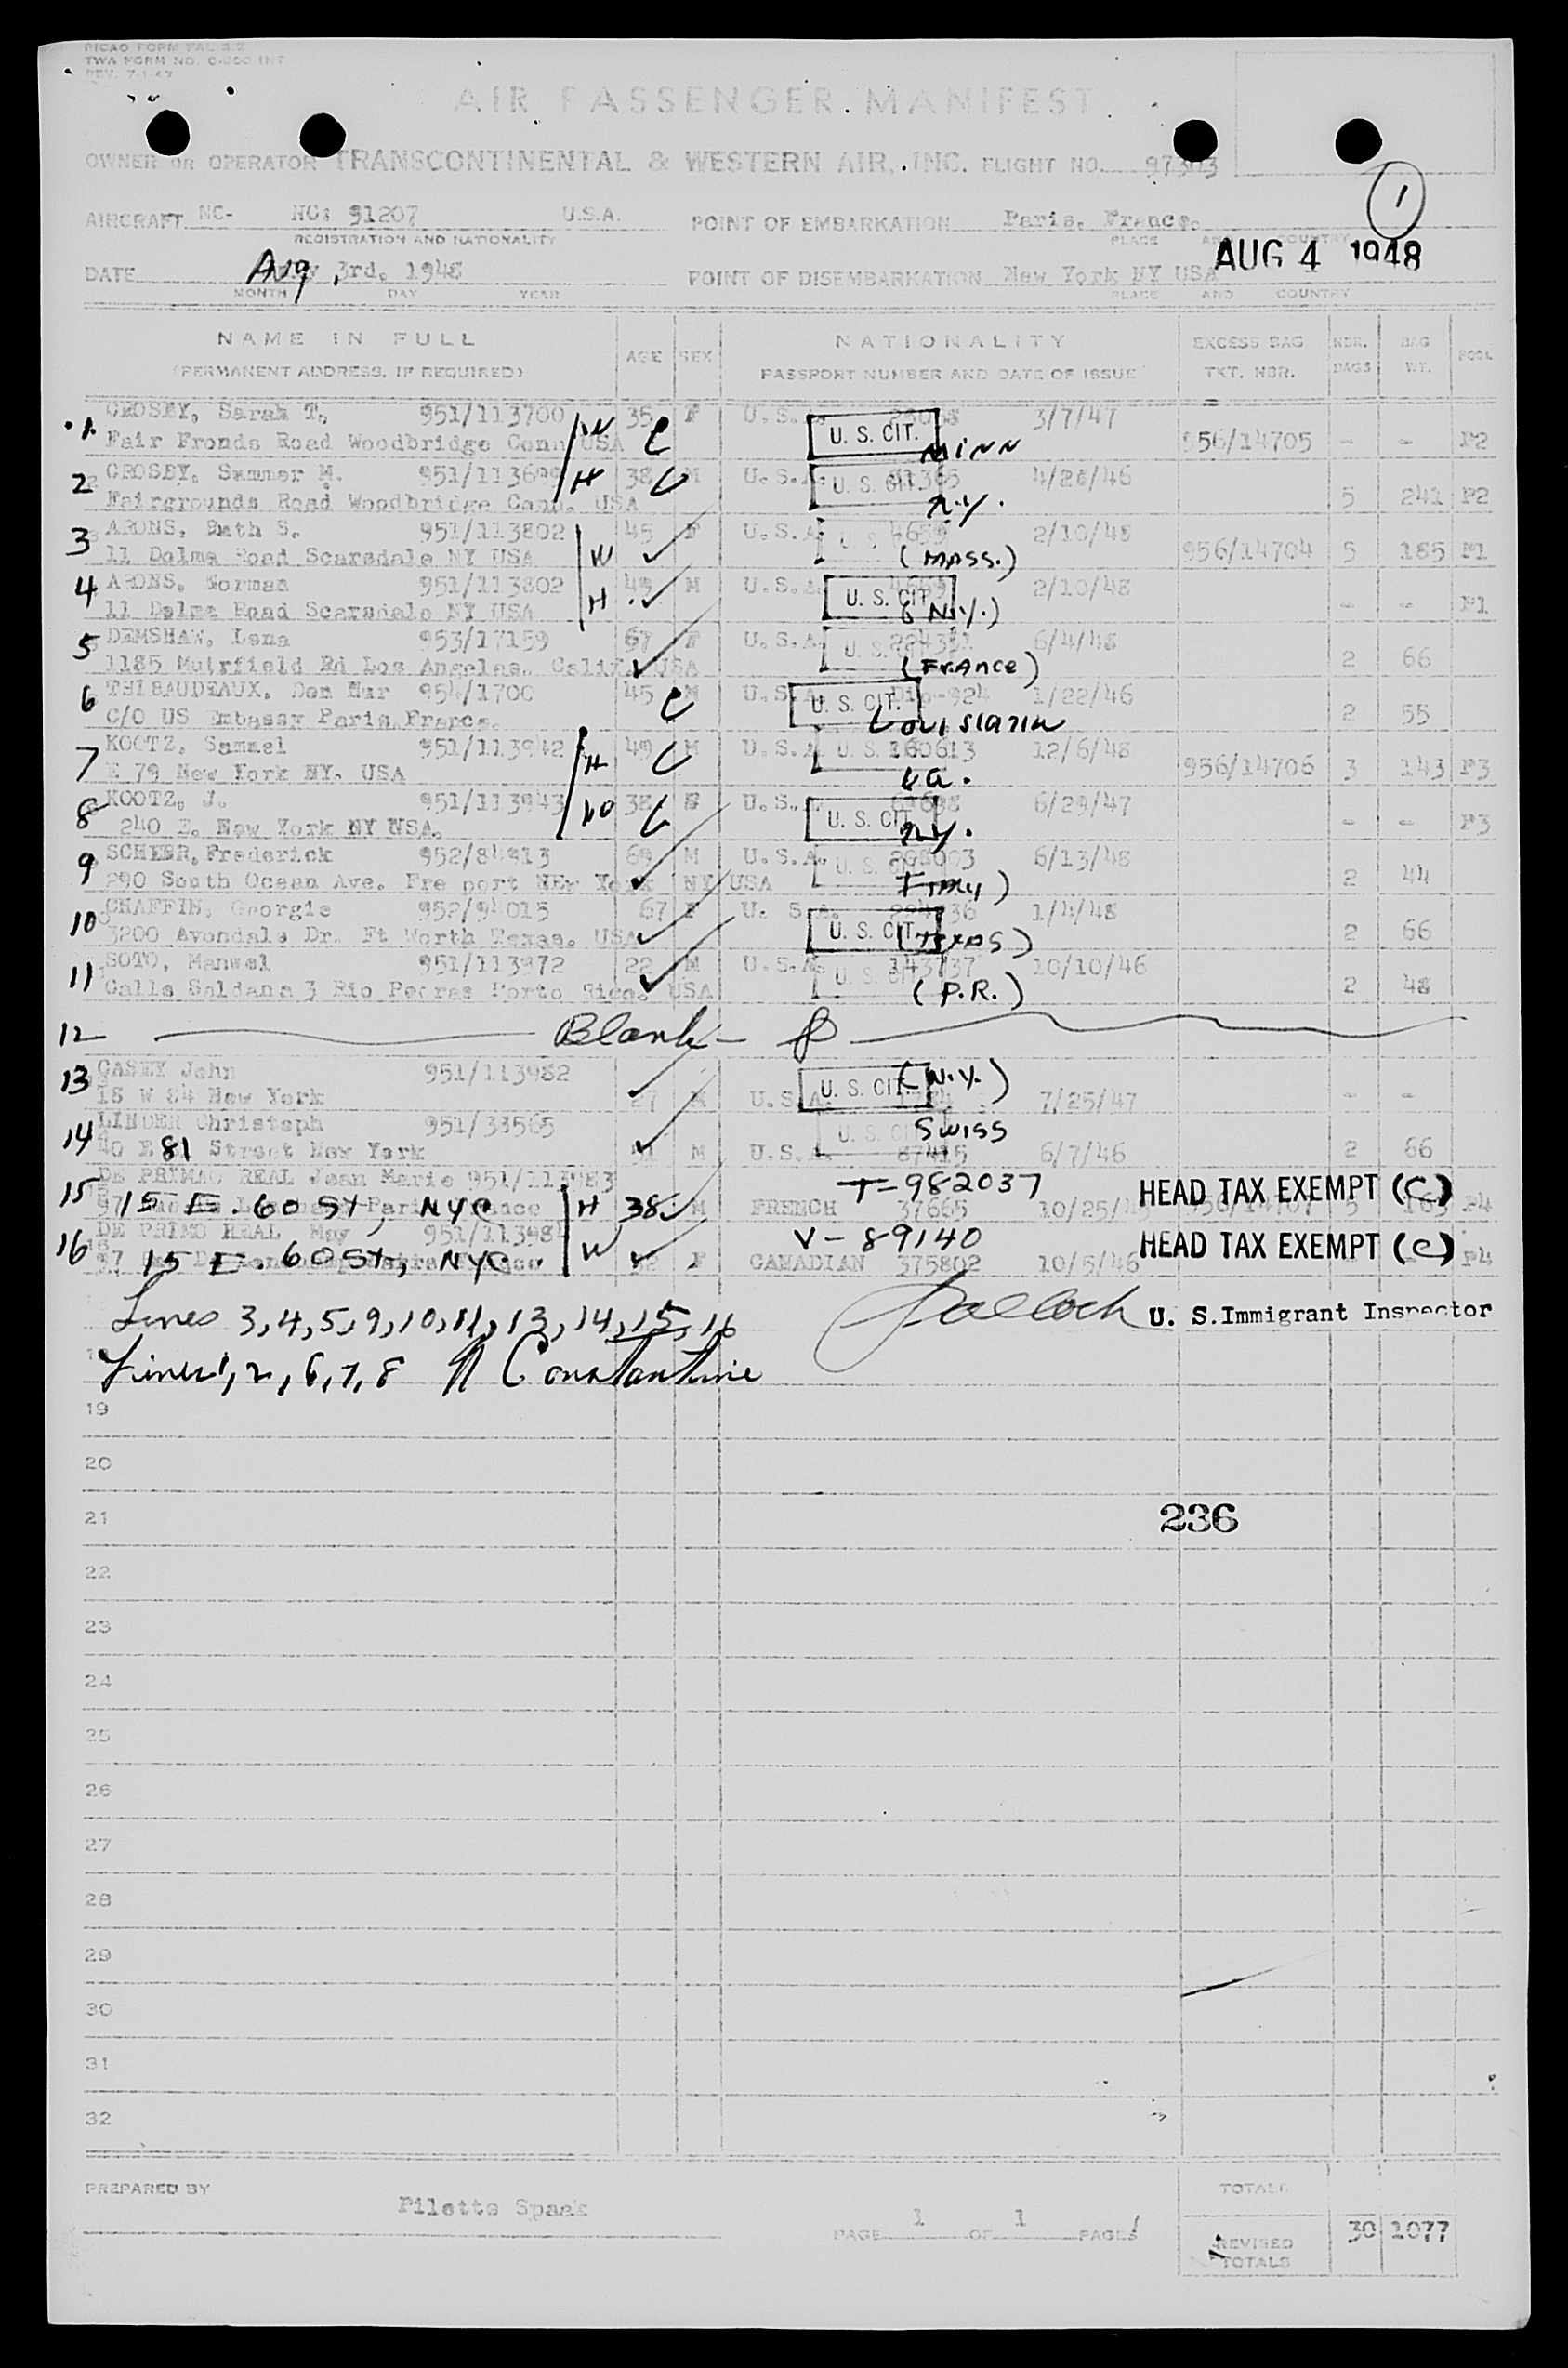 PICAO FORM PAL 3.2
TWA FORM NO. INT
REV. 7-1-47
AIR PASSENGER MANIFEST
OWNER OR OPERATOR TRANSCONTINENTAL & WESTERN AIR, INC. FLIGHT NO.
1
AIRCRAFT NC- NC: 91207 U.S.A. POINT OF EMBARKATION Paris, France.
REGISTRATION AND NATIONALITY PLACE AND COUNTRY
AUG 4 1948
DATE Aug, 3rd. 1948 POINT OF DISEMBARKATION New York NY USA
MONTH DAY YEAR PLACE AND COUNTRY
NAME IN FULL AGE SEX NATIONALITY EXCESS BAG NBR. BAG POOL
(PERMANENT ADDRESS, IF REQUIRED) PASSPORT NUMBER AND DATE OF ISSUE TKT. NBR. BAGS WT.
1 CROSBY, Sarah T. 951/113700 W 35 F U.S.A. U. S. CIT. 3/7/47
Fair Fronds Road Woodbridge Conn USA C MINN 956/14705 - - P2
2 CROSBY, Sammer M. 951/113699 H 38 M U.S.A. U. S. CIT. 4/26/46
Fairgrounds Road Woodbridge Conn. USA C N.Y. 5 241 P2
3 ARONS, Ruth S. 951/113802 45 F U.S.A. 2/10/48
11 Dolma Road Scarsdale NY USA W (MASS.) 956/14704 5 185 P1
4 ARONS, Norman 951/113802 49 M U.S.A. 2/10/48
11 Dolma Road Scarsdale NY USA H U. S. CIT. (N.Y.) - - P1
5 DEMSHAW, Lena 953/17159 67 F U.S.A. 224351 6/4/48
1185 Muirfield Rd Los Angeles. Calif. USA (FRANCE) 2 66
6 THIBAUDEAUX, Don Mar 954/1700 45 M U.S.A. U. S. CIT. Dip-924 1/22/46
C/O US Embassy Paris France. C Louisiana 2 55
7 KOOTZ, Samuel 951/113942 49 M U.S.A. U. S. 160613 12/6/48
E 79 New York NY. USA H C Va. 956/14706 3 143 P3
8 KOOTZ, J. 951/113943 38 F U.S. 6/29/47
240 E. New York NY USA. W C U. S. CIT. N.Y. - - P3
9 SCHERR, Frederick 952/84913 69 M U.S.A. 6/13/48
290 South Ocean Ave. Fre port NEr York NY USA 2 44
10 CHAFFIN, Georgie 952/94015 67 F U. S.A. 1/4/48
3200 Avondale Dr. Ft Worth Texas. USA U. S. CIT. (TEXAS) 2 66
11 SOTO, Manwel 951/113972 22 M U.S.A. 143737 10/10/46
Calle Saldana 3 Rio Pedras Porto Rico. USA (P.R.) 2 48
12 Blank
13 CASEY John 951/113982 U. S. CIT. (N.Y.)
18 W 84 New York 27 M U.S.A. 7/25/47 - -
14 LINDER Christoph 951/33565 SWISS
40 E 81 Street New York 51 M U.S.A. 87415 6/7/46 2 66
15 DE PRIMAO REAL Jean Marie 951/113983 T-982037 HEAD TAX EXEMPT (C)
15 E. 60 St, NYC H 38 M FRENCH 37665 P4
16 DE PRIMO REAL May 951/11398 V-89140 HEAD TAX EXEMPT (C)
15 E. 60 St, NYC W F CANADIAN 375802 10/5/46 P4
Lines 3, 4, 5, 9, 10, 11, 13, 14, 15, 16 U. S. Immigrant Inspector
Lines 1, 2, 6, 7, 8 Constantine
19
20
21 236
22
23
24
25
26
27
28
29
30
31
32
PREPARED BY Pilette Spaak TOTALS
PAGE 1 OF 1 PAGES
REVISED TOTALS 30 1077